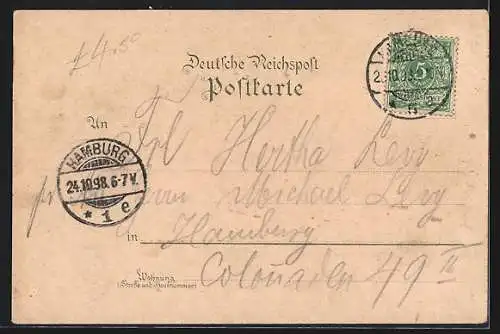 £4.50
Deutsche Reichspost
Postkarte
5
An
Frl Hertha Levy
HAMBURG
24.10.98. 6-7 V.
* 1 e
Herrn Michael Levy
in Hamburg
Colonaden 49 II
Wohnung
(Straße und Hausnummer)